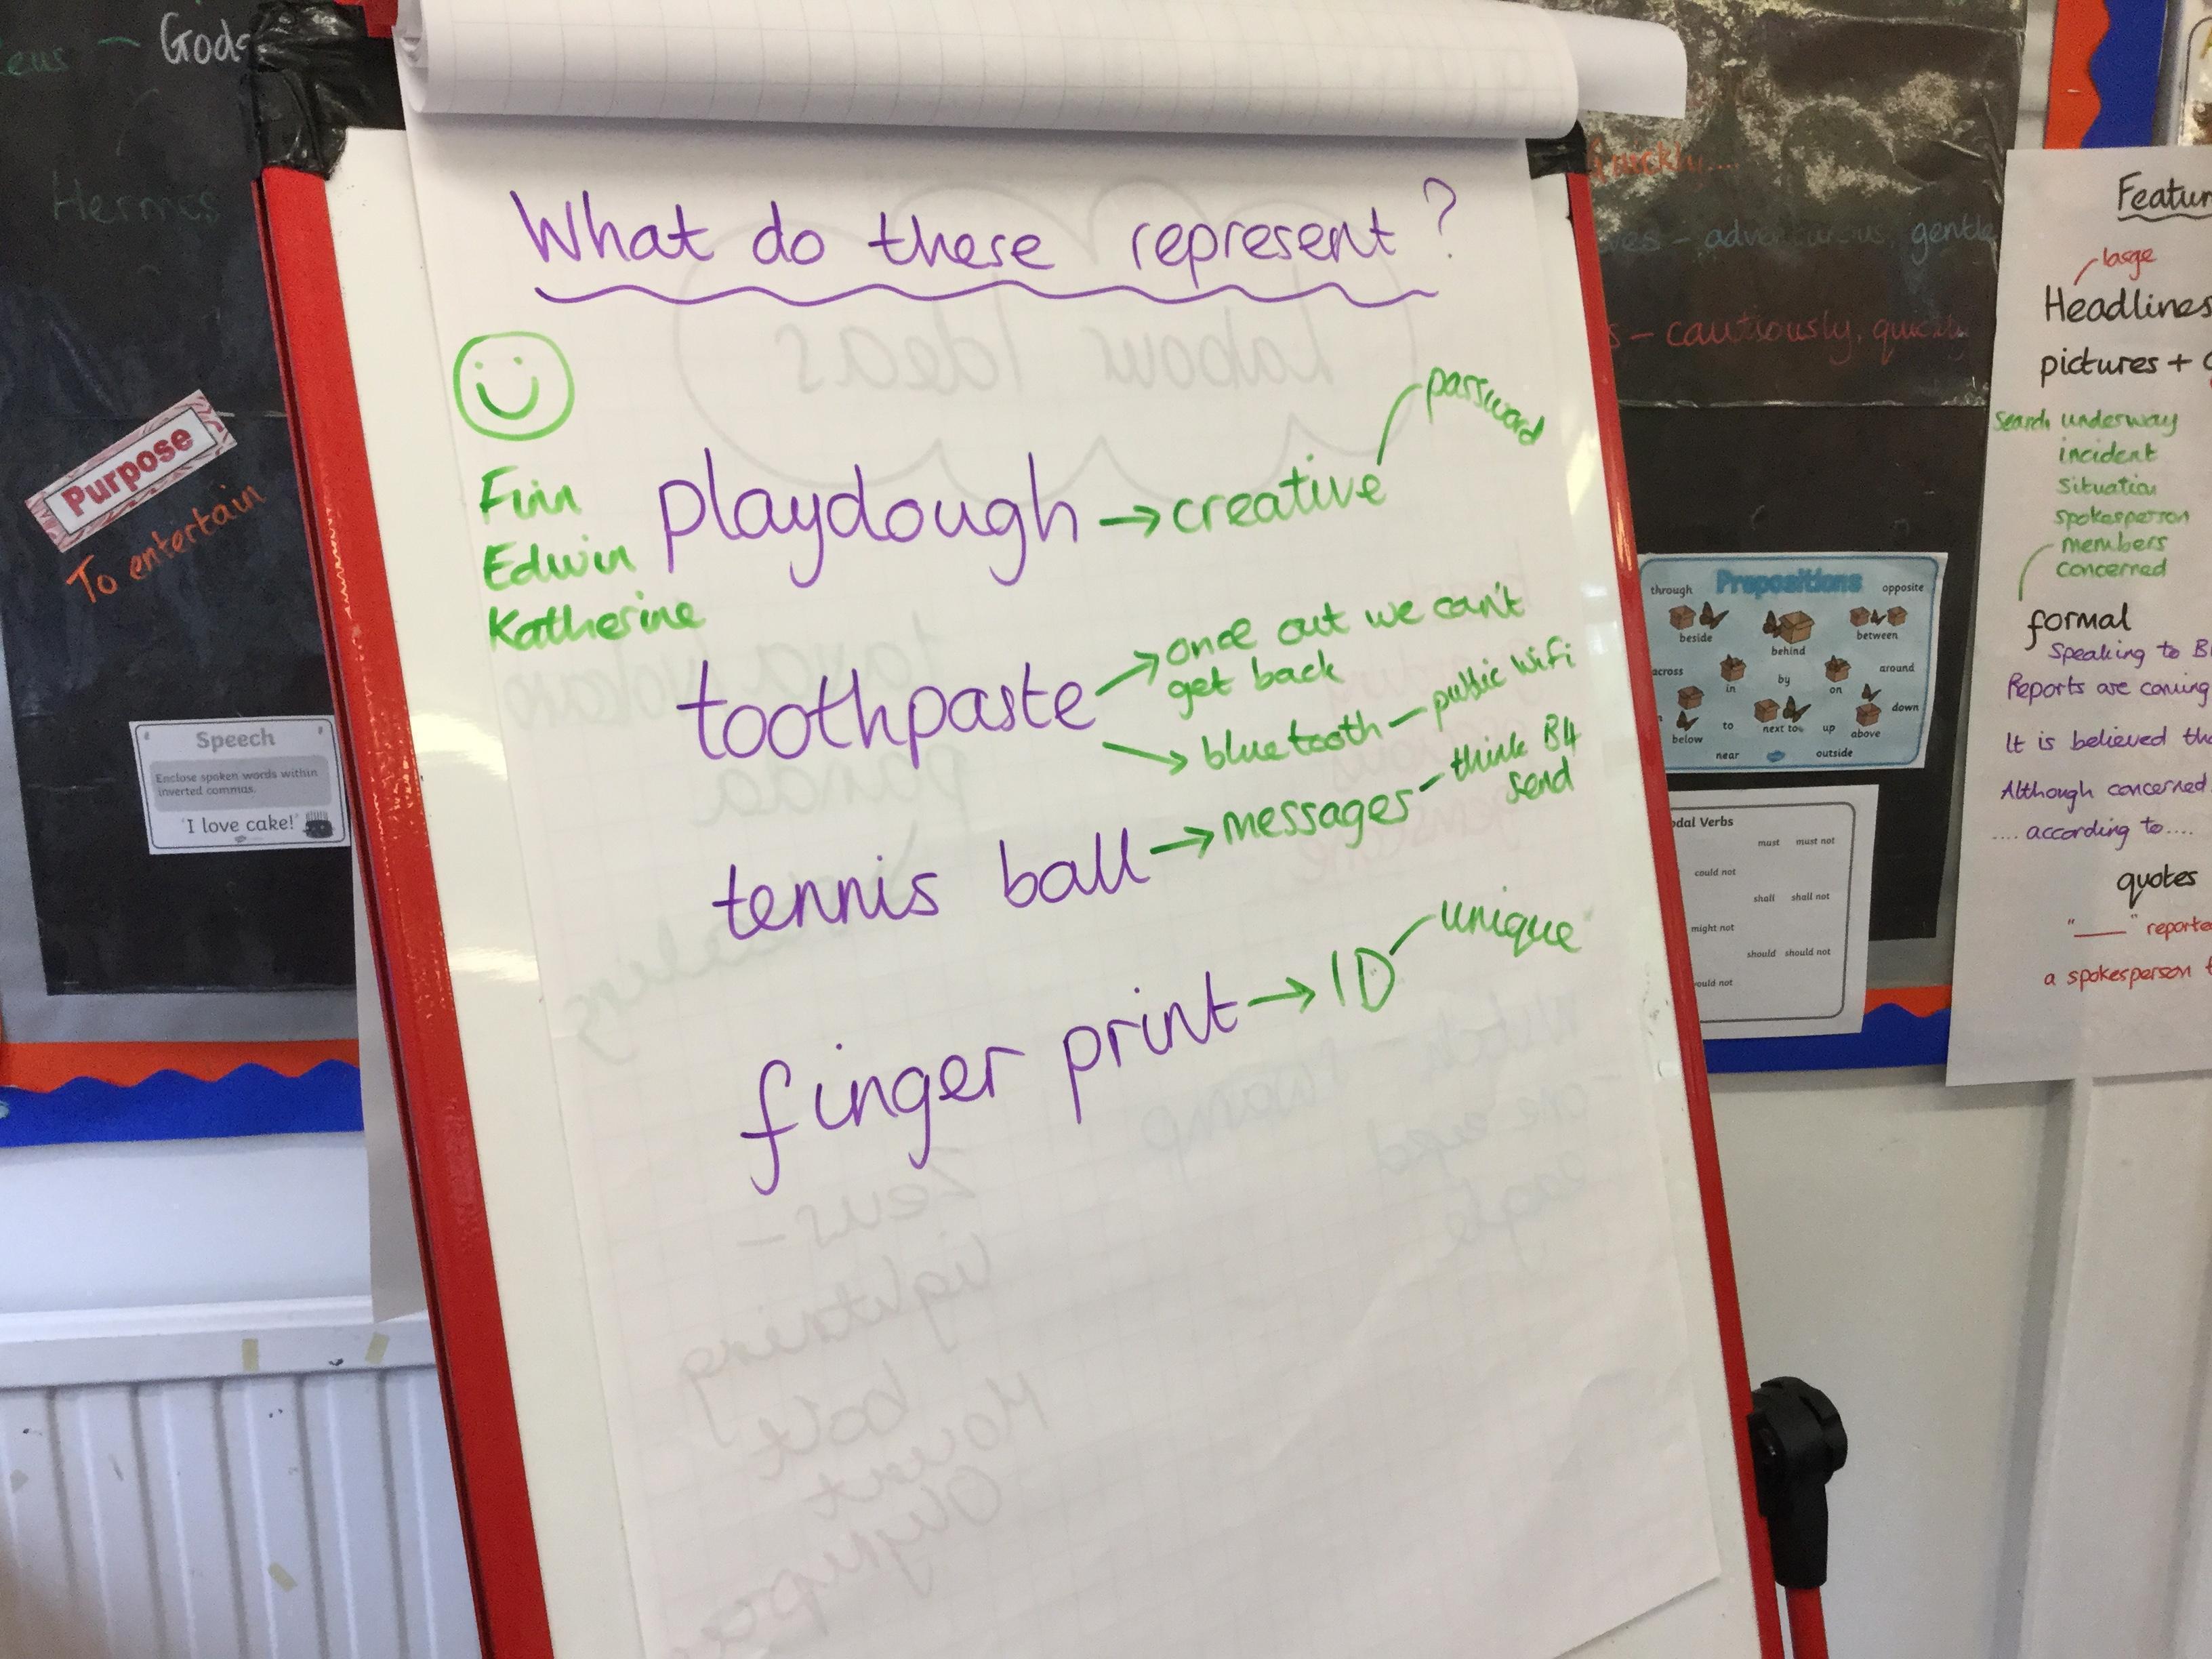 What do these represent?
Finn
Edwin
Katherine
playdough → creative
password
toothpaste → once out we can't
get back
bluetooth - public wifi
tennis ball → messages - think B4
send
finger print → ID
unique
Gods
Hermes
Purpose
To entertain
Speech
Enclose spoken words within
inverted commas.
'I love cake!'
Labour Ideas
Zeus -
lightning
bolt
Mount
quickly...
- adventurous, gentle
- cautiously, quickly
Prepositions
through
opposite
beside
behind
between
across
in
by
on
around
below
to
next to
up
above
down
near
outside
Verbs
must must not
could not
shall shall not
might not
should should not
large
Headlines
pictures +
Search underway
incident
situation
spokesperson
members
concerned
formal
Speaking to
Reports are coming
It is believed
Although concerned
.... according to ....
quotes
"____"
a spokesperson